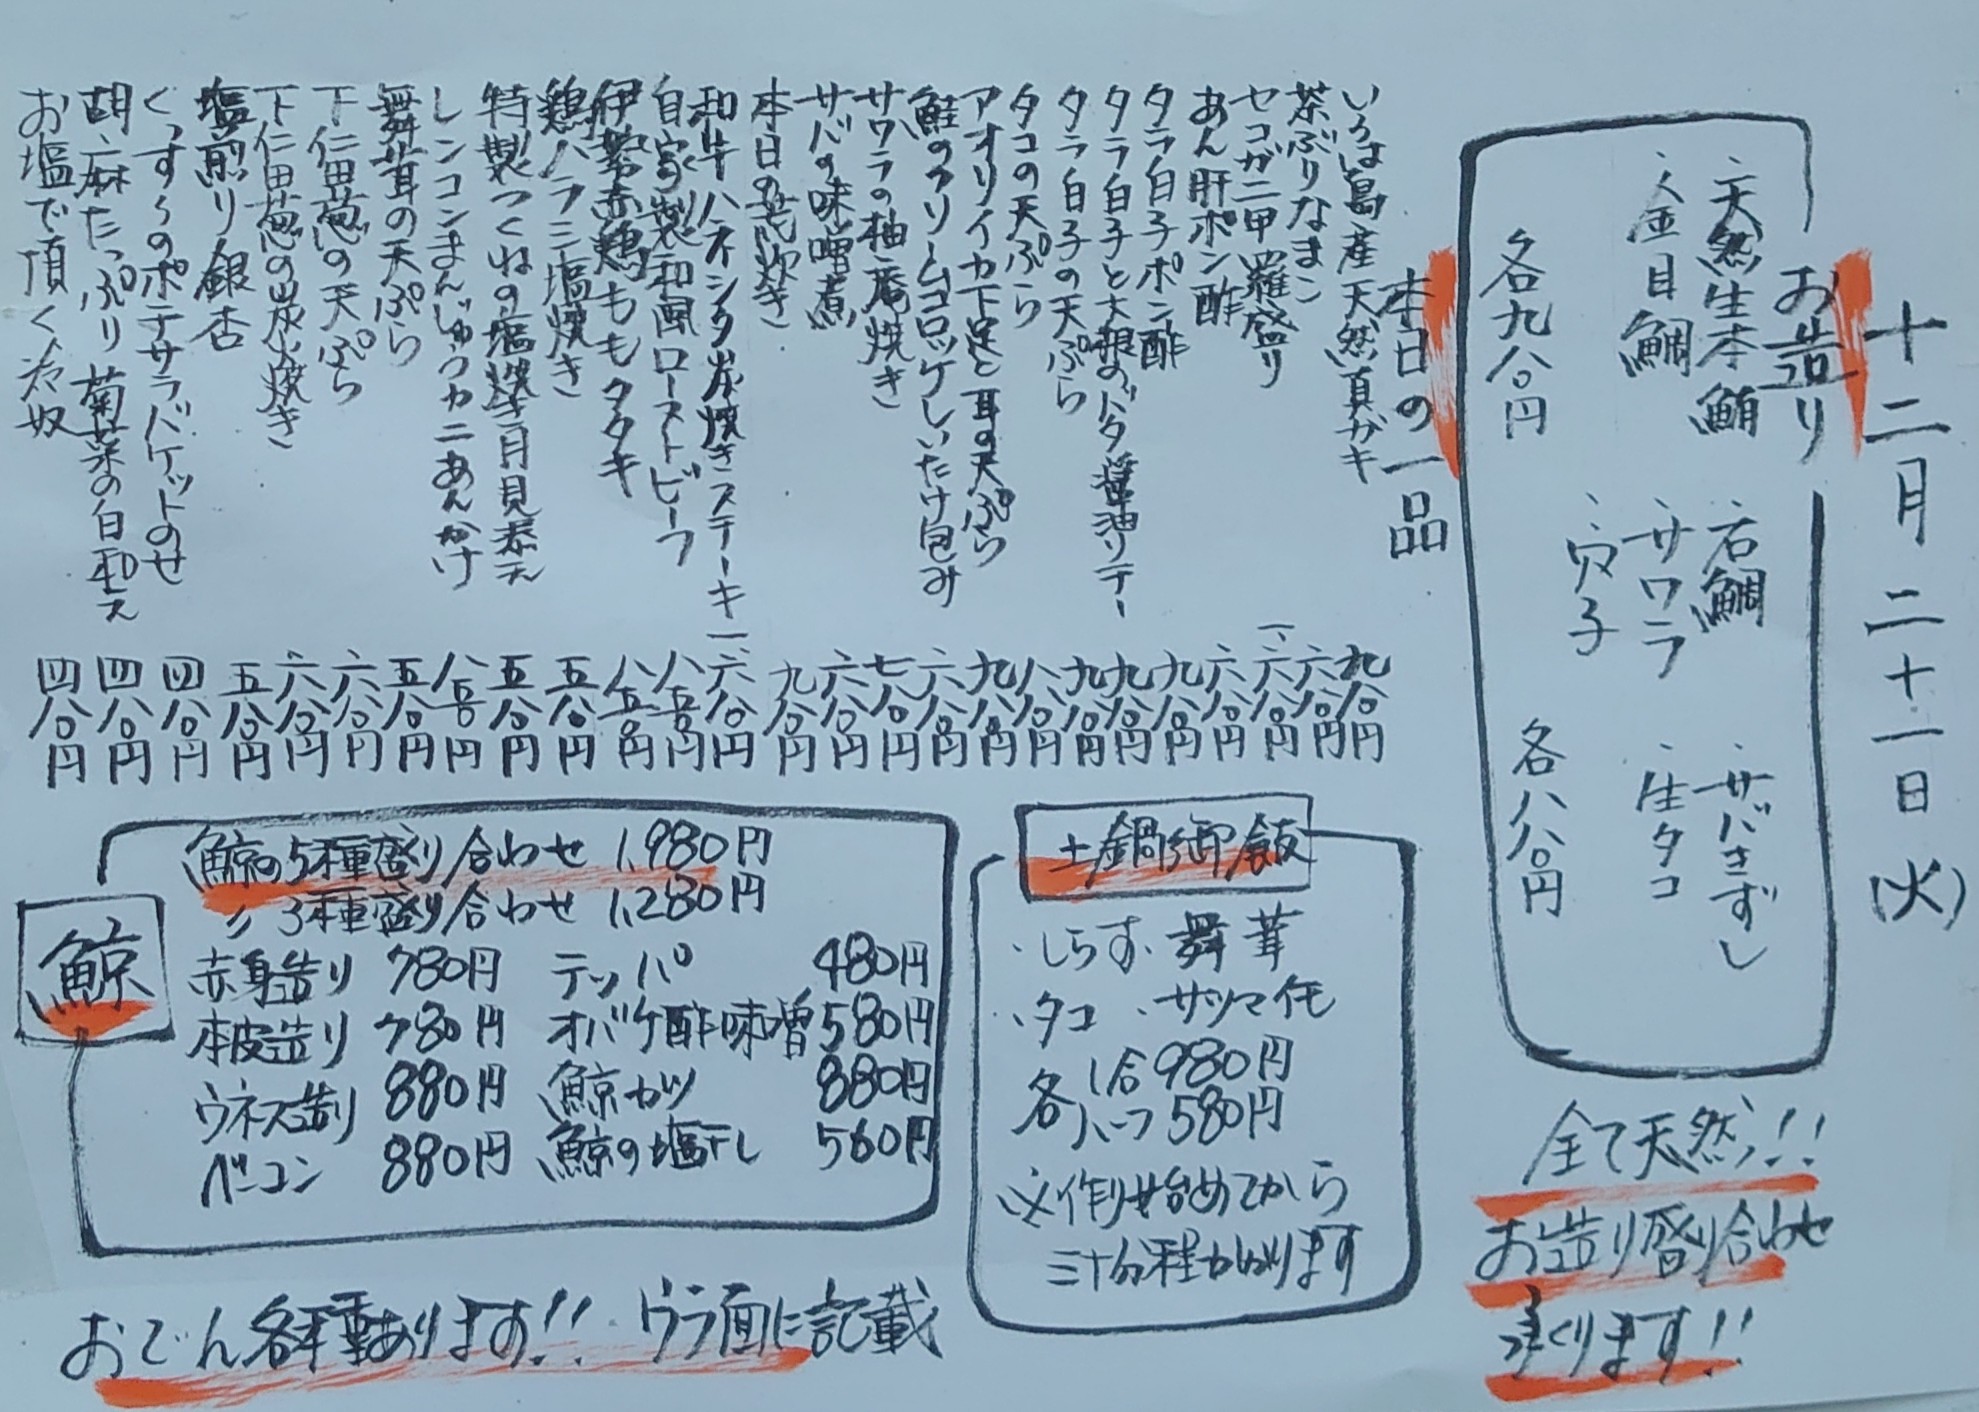 十二月二十一日(火)
お造り
・天然生本鮪 ・石鯛 ・サバきずし
・金目鯛 ・サワラ ・生タコ
・穴子
各九八〇円 各八八〇円
全て天然!!
お造り盛り合わせ
承ります!!
本日の一品
いろは島産天然真ガキ 九八〇円
茶ぶりなまこ 六八〇円
セコガニ甲羅盛り 一、六八〇円
あん肝ポン酢 六八〇円
タラ白子ポン酢 九八〇円
タラ白子と大根のバタ醤油ソテー 九八〇円
タラ白子の天ぷら 九八〇円
タコの天ぷら 八八〇円
アオリイカ下足と耳の天ぷら 九八〇円
鮭のクリームコロッケしいたけ包み 六八〇円
サワラの柚庵焼き 七八〇円
サバの味噌煮 六八〇円
本日の荒炊き 九八〇円
和牛ハネシタ炭焼きステーキ 一、六八〇円
自家製和風ローストビーフ 八五〇円
伊勢赤鶏ももタタキ 八五〇円
鶏ハラミ塩焼き 五八〇円
特製つくねの塩焼き月見添え 五八〇円
レンコンまんじゅうカニあんかけ 八五〇円
舞茸の天ぷら 五八〇円
下仁田葱の天ぷら 六八〇円
下仁田葱の炭焼き 六八〇円
塩煎り銀杏 五八〇円
くっすぅのポテサラバケットのせ 四八〇円
胡麻たっぷり菊菜の白和え 四八〇円
お塩で頂く冷奴 四八〇円
土鍋御飯
・しらす ・舞茸
・タコ ・サツマイモ
各1合980円
各ハーフ580円
※作り始めてから
三十分程かかります
鯨
鯨の5種盛り合わせ 1,980円
〃 3種盛り合わせ 1,280円
赤身造り 780円 テッパ 480円
本皮造り 780円 オバケ酢味噌 580円
ウネス造り 880円 鯨カツ 880円
ベーコン 880円 鯨の塩干し 560円
おでん各種あります!! ウラ面に記載